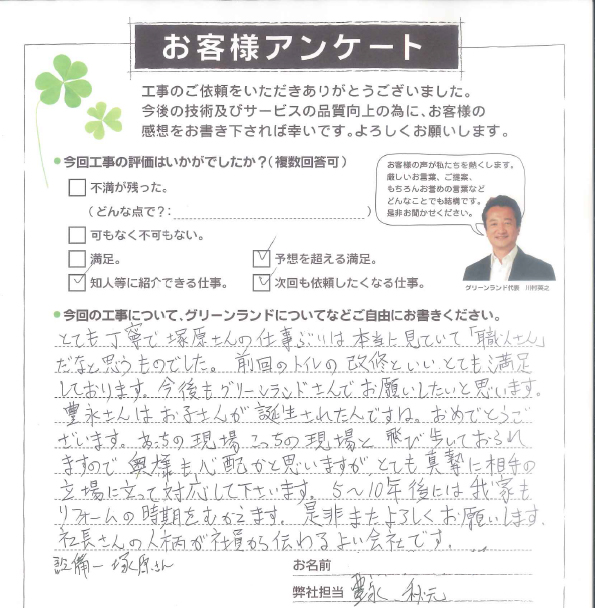 お客様アンケート
工事のご依頼をいただきありがとうございました。
今後の技術及びサービスの品質向上の為に、お客様の
感想をお書き下されば幸いです。よろしくお願いします。
●今回工事の評価はいかがでしたか?(複数回答可)
不満が残った。
(どんな点で?: )
可もなく不可もない。
満足。
予想を超える満足。
知人等に紹介できる仕事。
次回も依頼したくなる仕事。
お客様の声が私たちを熱くします。
厳しいお言葉、ご提案、
もちろんお誉めの言葉など
どんなことでも結構です。
是非お聞かせください。
グリーンランド代表 川村英之
●今回の工事について、グリーンランドについてなどご自由にお書きください。
とても丁寧で塚原さんの仕事ぶりは本当に見ていて「職人さん」
だなと思うものでした。前回のトイレの改修といいとても満足
しております。今後もグリーンランドさんでお願いしたいと思います。
豊永さんはお子さんが誕生されたんですね。おめでとうご
ざいます。あっちの現場こっちの現場と飛び歩いておられ
ますので奥様も心配かと思いますが、とても真摯に相手の
立場に立って対応して下さいます。5〜10年後には我家も
リフォームの時期をむかえます。是非またよろしくお願いします。
社長さんの人柄が社員から伝わるよい会社です。
設備一塚原さん
お名前
弊社担当 豊永 秋元